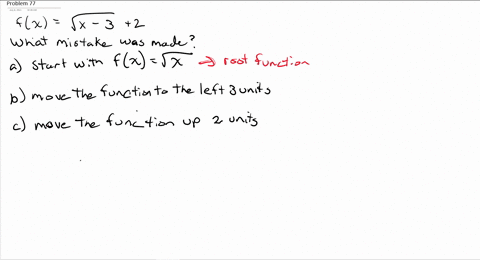 Problem 77
f(x) = √x - 3 + 2
What mistake was made?
a) Start with f(x) = √x → root function
b) move the function to the left 3 units
c) move the function up 2 units